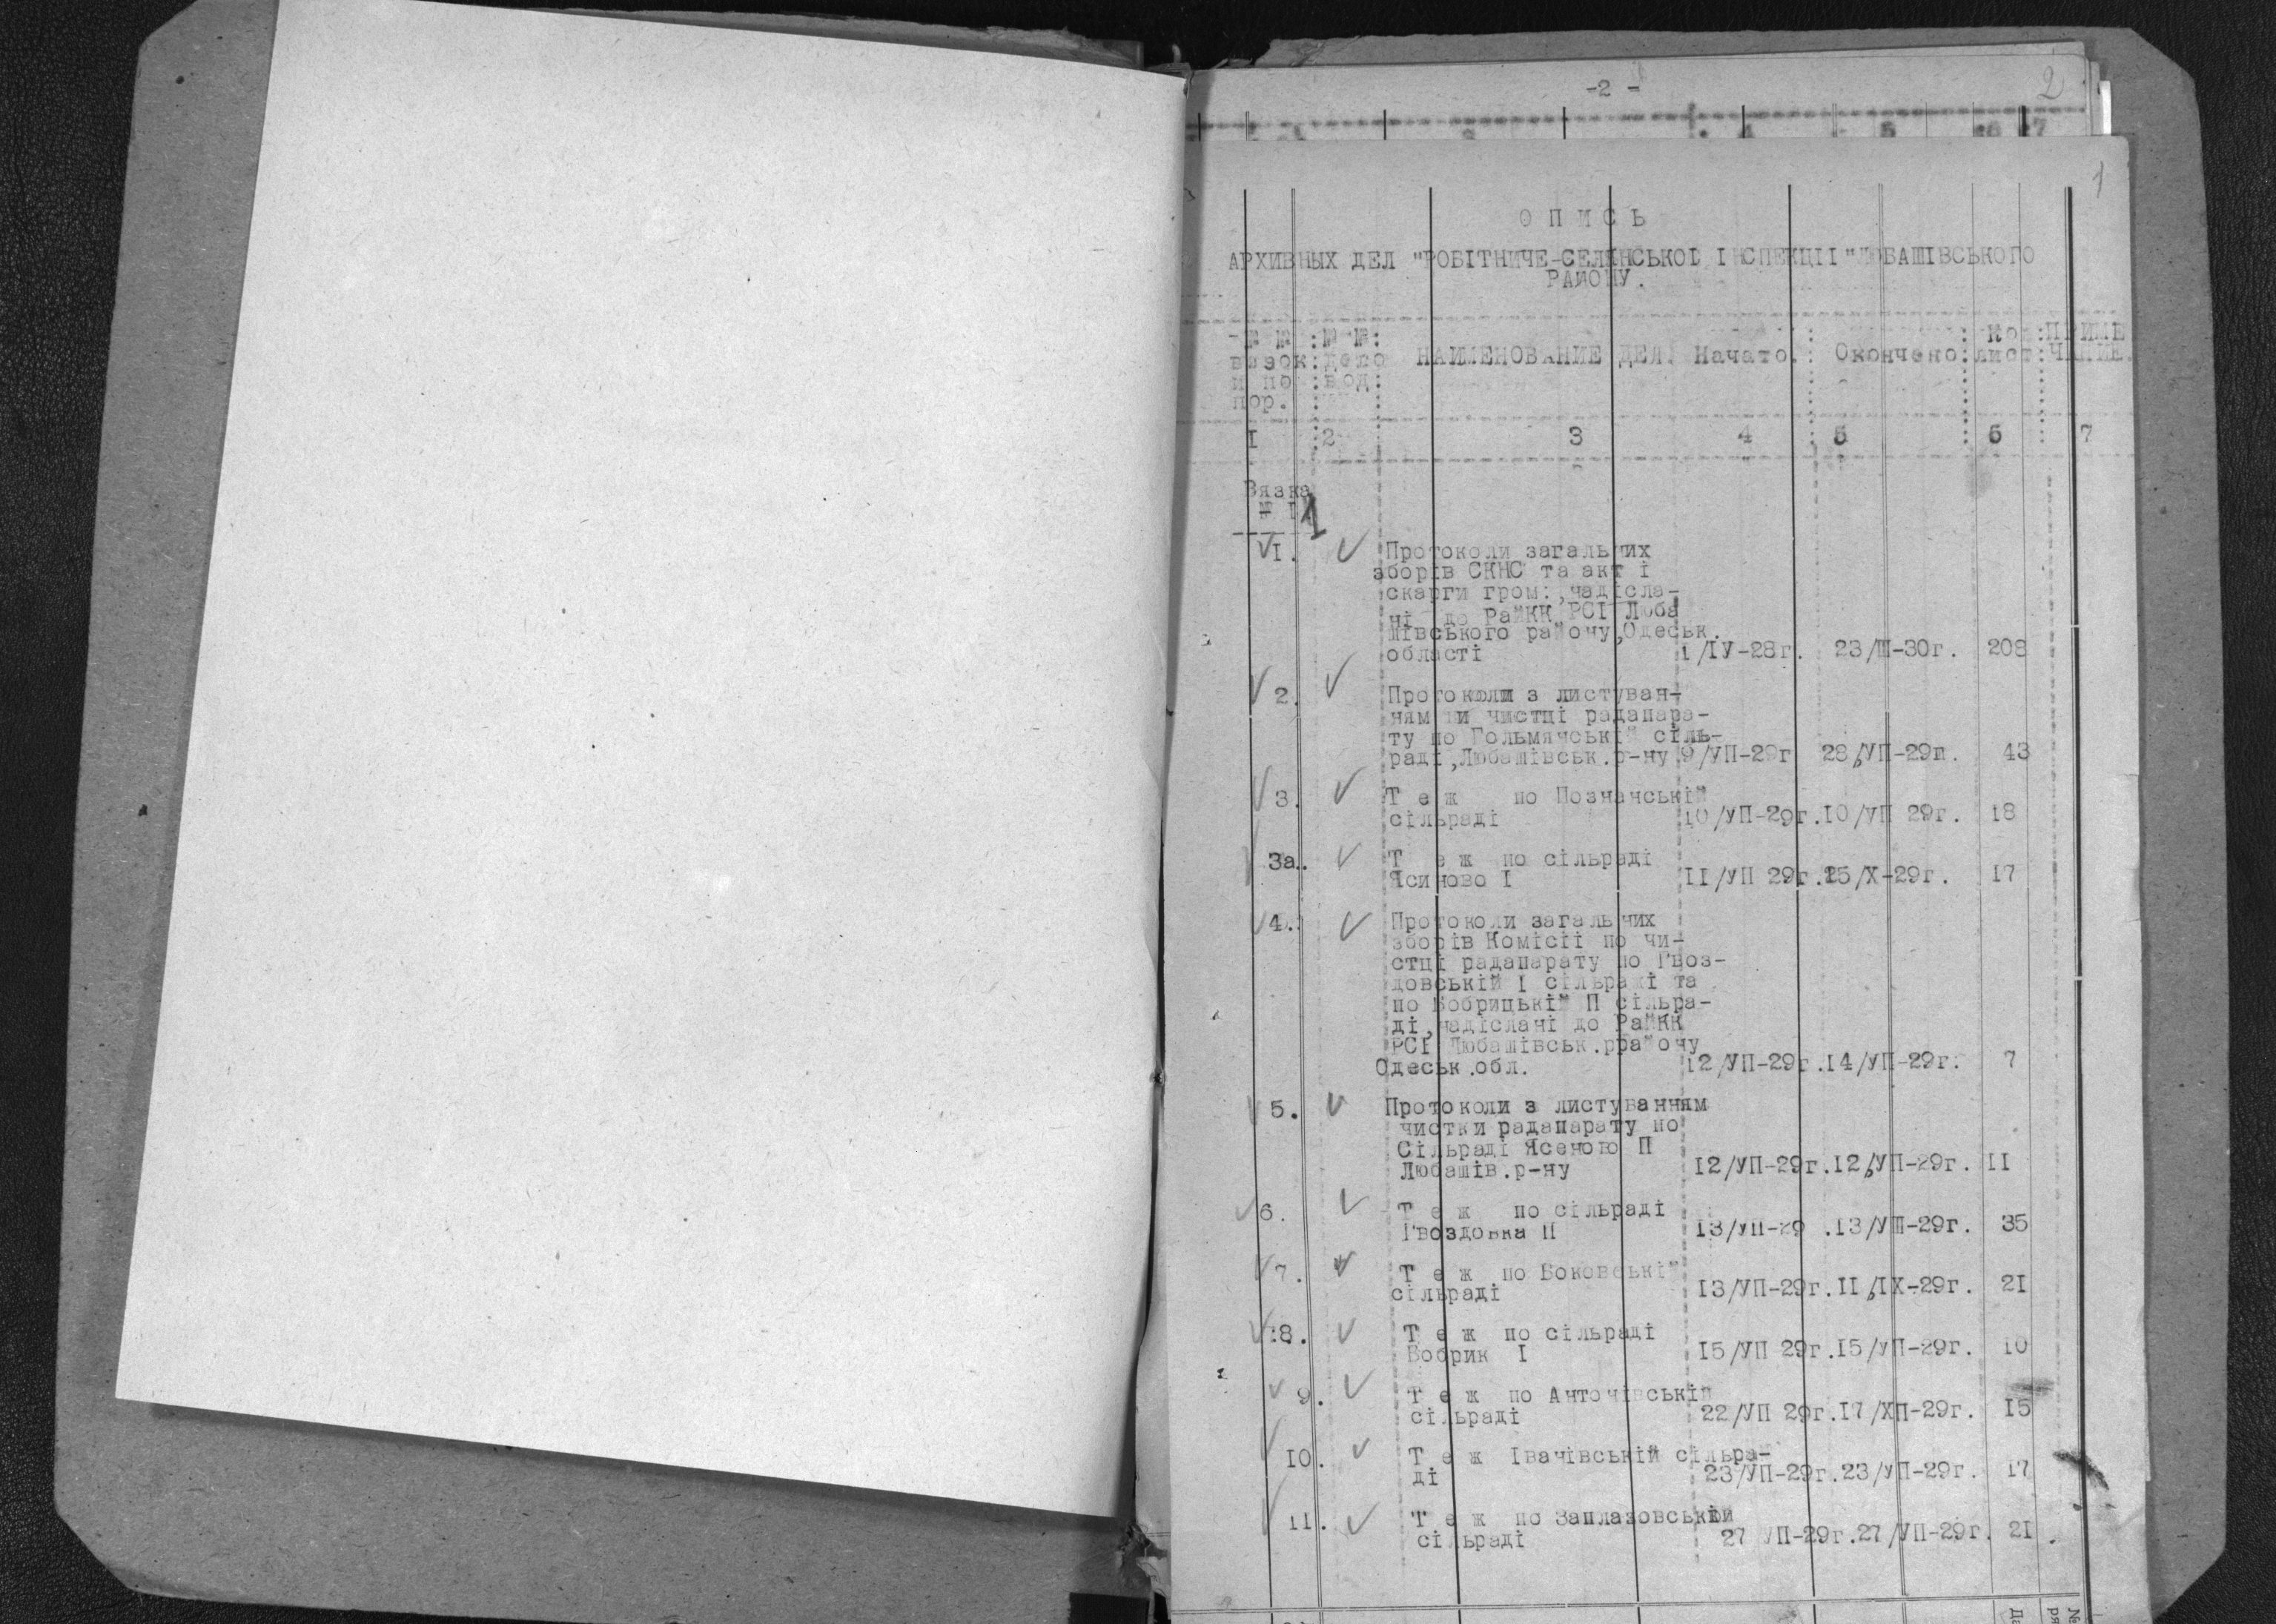 -2 -
2
4 5 6 7
1
О П И С Ь
АРХИВНЫХ ДЕЛ "РОБІТНИЧЕ-СЕЛЯНСЬКОІ ІНСПЕКЦІІ" ЛЮБАШІВСЬКОГО
РАЙОНУ.
№ № : № № : Кол : ПРИМЕ
вязок : дело НАИМЕНОВАНИЕ ДЕЛ. Начато. : Окончено : лист : ЧАНИЕ.
и по : вод :
пор. :
I : 2 3 4 : 5 : 6 : 7
Вязка
№ I 1
I. Протоколи загальних
зборів СКНС та акт і
скарги гром:,надісла-
ні до РайКК РСІ Люба
шівського району,Одеськ.
області 1/ІУ-28г. 23/Ш-30г. 208
2. Протоколи з листуван-
ням ли чистці радапара-
ту по Гольмянській сіль-
раді,Любашівськ.р-ну 9/УП-29г 28/УП-29г. 43
3. Т е ж по Познанській
сільраді 10/УП-29г.10/УП 29г. 18
3а.. Т е ж по сільраді
Ясиново I II/УП 29г.25/Х-29г. 17
4. Протоколи загальних
зборів Комісії по чи-
стці радапарату по Гвоз-
довській I сільраді та
по Бобрицькій П сільра-
ді,надіслані до РайКК
РСІ Любашівськ.ррайону
Одеськ.обл. 12/УП-29г.14/УП-29г. 7
5. Протоколи з листуванням
чистки радапарату по
Сільраді Ясеною П
Любашів.р-ну 12/УП-29г.12/УП-29г. II
6. Т е ж по сільраді
Гвоздовка П 13/УП-29 .13/УШ-29г. 35
7. Т е ж по Боковській
сільраді 13/УП-29г.II/ІХ-29г. 21
:8. Т е ж по сільраді
Бобрик I 15/УП 29г.15/УП-29г. 10
9. Т е ж по Антонівській
сільраді 22/УП 29г.17/ХП-29г. 15
10. Т е ж Іванівській сільра-
ді 23/УП-29г.23/УП-29г. 17
11. Т е ж по Заплазовській
сільраді 27 УП-29г.27/УП-29г. 21 .